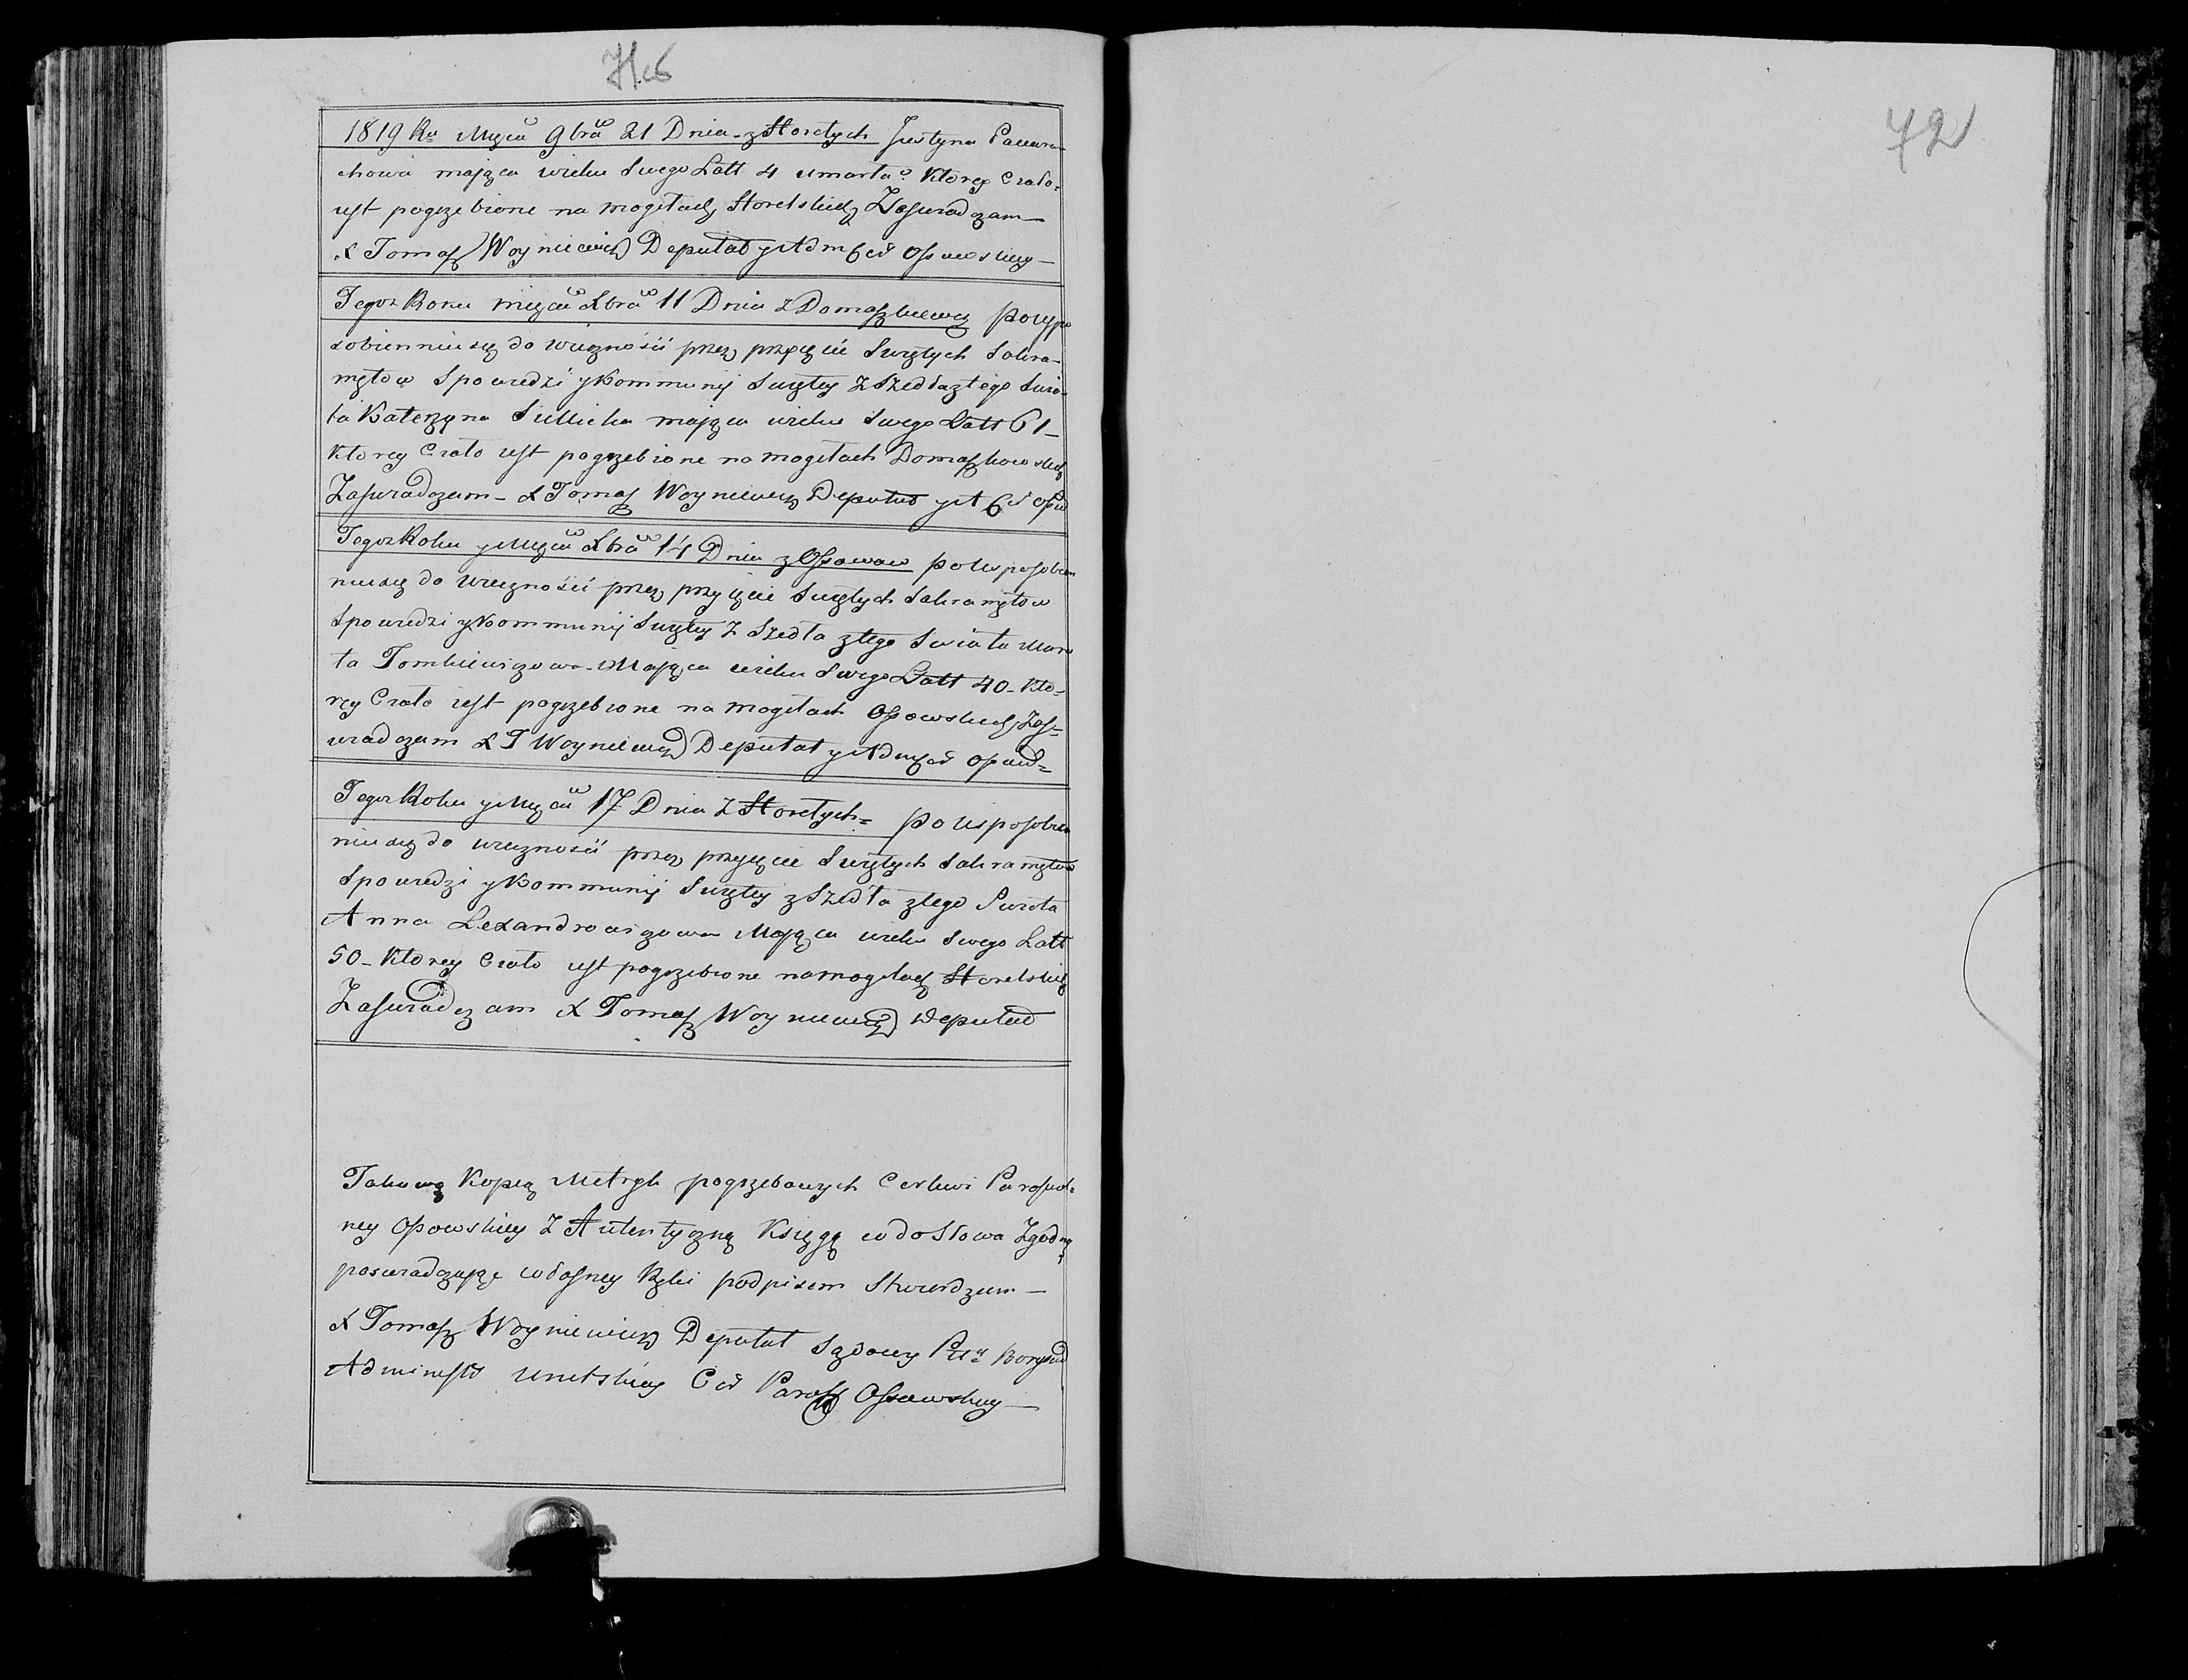 71 об
72
1819 Ru Mca 9bra 21 Dnia z Horełych Justyna
chowa mająca wieku Swego Latt 4 umarła Ktorey Ciało
iest pogrzebione na mogiłach Horelskich Zaswiadczam
X Tomasz Woyniewicz Deputat y Adm Cer Ossowskiey
Tegoż Roku miesca Xbra 11 Dnia z Domaszkiewicz po uspo
sobienniu się do wieczności przez przyięcie Swiętych Sakra
mętow Spowiedzi y Kommunij Swiętey z Szedła z tego Swia
ta Katerzyna Sullicka mająca wieku Swego Latt 61
Ktorey Ciało iest pogrzebione na mogiłach Domaszkowskich
Zaswiadczam X Tomasz Woyniewicz Deputat y A Cer Ossow
Tegoż Roku y Miesca Xbra 14 Dnia z Ossowow po usposobien
niu się do wieczności przez przyięcie Swiętych Sakramętow
Spowiedzi y Kommunij Swiętey z Szedła z tego Swiata Mar
ta Tomkiewiczowa Mająca wieku Swego Latt 40 Kto
rey Ciało iest pogrzebione na mogiłach Ossowskich Zas
wiadczam X T Woyniewicz Deputat y Adm Cer Ossow
Tegoż Roku y Miesca 17 Dnia z Horełych po usposobien
niu się do wieczności przez przyięcie Swiętych Sakramętow
Spowiedzi y Kommunij Swiętey z Szedła z tego Swiata
Anna Lexandrowiczowa Mająca wieku Swego Latt
50 Ktorey Ciało iest pogrzebione na mogiłach Horelskich
Zaswiadczam X Tomasz Woyniewicz Deputat
Takową Kopią Metryk pogrzebowych Cerkwi Parafial
ney Ossowskiey z Autentyczną Księgą co do słowa Zgodną
poswiadczając własney Ręki podpisem Stwierdzam
X Tomasz Woyniewicz Deputat Sądowy Ptu Borysow
Administr Unitskiey Cer Paraf Ossowskiey